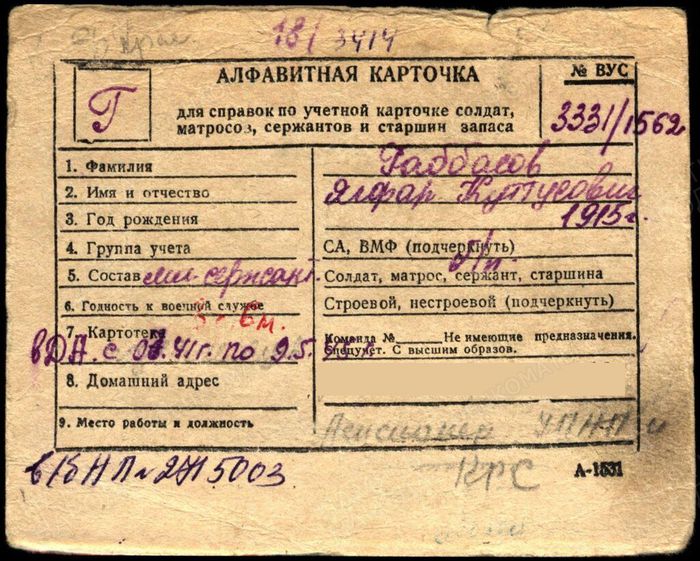 18/3414
АЛФАВИТНАЯ КАРТОЧКА
Г
для справок по учетной карточке солдат,
матросов, сержантов и старшин запаса
№ ВУС
3331/1562
1. Фамилия Габбасов
2. Имя и отчество Ялфар Кутусович
3. Год рождения 1915 г.
4. Группа учета СА, ВМФ (подчеркнуть)
5. Состав мл-сержант. Солдат, матрос, сержант, старшина
6. Годность к военной службе Строевой, нестроевой (подчеркнуть)
7. Картотека Команда № Не имеющие предназначения.
Спецучет. С высшим образов.
в ДА. с 41г. по 9.5.
8. Домашний адрес
9. Место работы и должность Пенсионер
А-1531